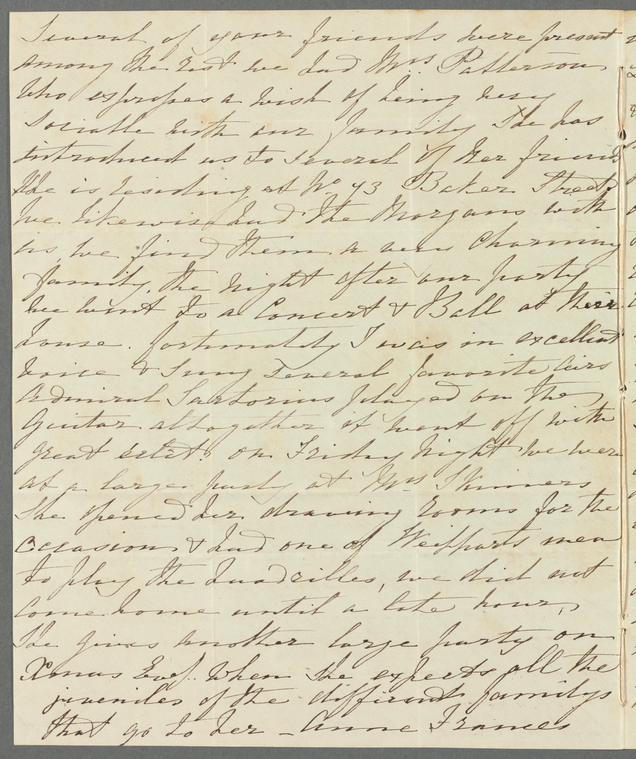 Several of your friends were present
among the rest we had Mrs Patterson
who expresses a wish of being very
Sociable with our family She has
introduced us to several of her friends
She is residing at No 43 Baker Street
we likewise had the Morgans with
us, we find them a very Charming
family, the night after our party
we went to a Concert & Ball at their
house. fortunately I was in excellent
voice & Sung Several favorite airs
Admiral Sartorius played on the
Guitar altogether it went off with
great eclat. on Friday night we were
at a large party at Mrs Skinners
She opened her drawing rooms for the
occasion & had one of Weipparts men
to play the Quadrilles, we did not
come home until a late hour,
She gives another large party on
Xmas Eve. when she expects all the
juveniles of the different familys
that go to her - Anne Frances